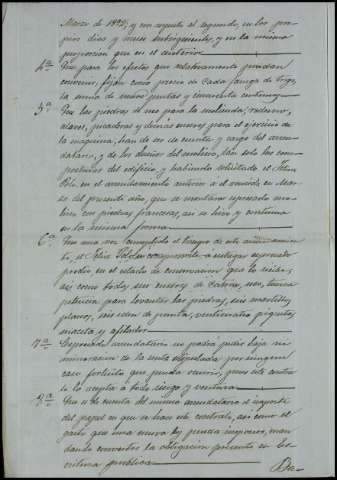 Marzo de 1992, y con respecto al segundo, en los pro-
pios dias y meses subsiguientes, y en la misma
proporcion que en el anterior
4ª Que para los efectos que relativamente puedan
convenir, fijan como precio de cada fanega de trigo
la suma de pesetas y cincuenta centimos
5ª Que las piedras de uso para la molienda, rodezno,
clares, picaderas y demás enseres para el ejercicio de
la maquina, han de ser de cuenta y cargo del arren-
datario, y de los dueños del molino, tan solo los com-
posturas del edificio, y habiendo solicitado el Felix
Polo en el arrendamiento anterior o el vencido en Mar-
zo del presente año, que se montara expresado mo-
lino con piedras francesas, así se hizo y continua
en la misma forma
6ª Que una vez cumplido el tiempo de este arrendamien-
to, el Felix Polo se compromete a entregar expresado
predio en el estado de conservacion que lo recibe,
así como todos sus enseres de cadena, uso, tuerca
para levantar las piedras, seis martillos
planos, seis iden de punta, veinticuatro piquetes,
maceta y afilador
7ª Expresado arrendatario no podrá pedir baja ni
minoracion de la renta estipulada por ningun
caso fortuito que pueda ocurrir, pues este contra-
to lo acepta a todo riesgo y ventura
8ª Que es de cuenta del mismo arrendatario el importe
del papel en que se haga este contrato, así como el
gasto que una nueva ley pueda imponer, man-
dando convertir la obligacion presente en Es-
critura publica